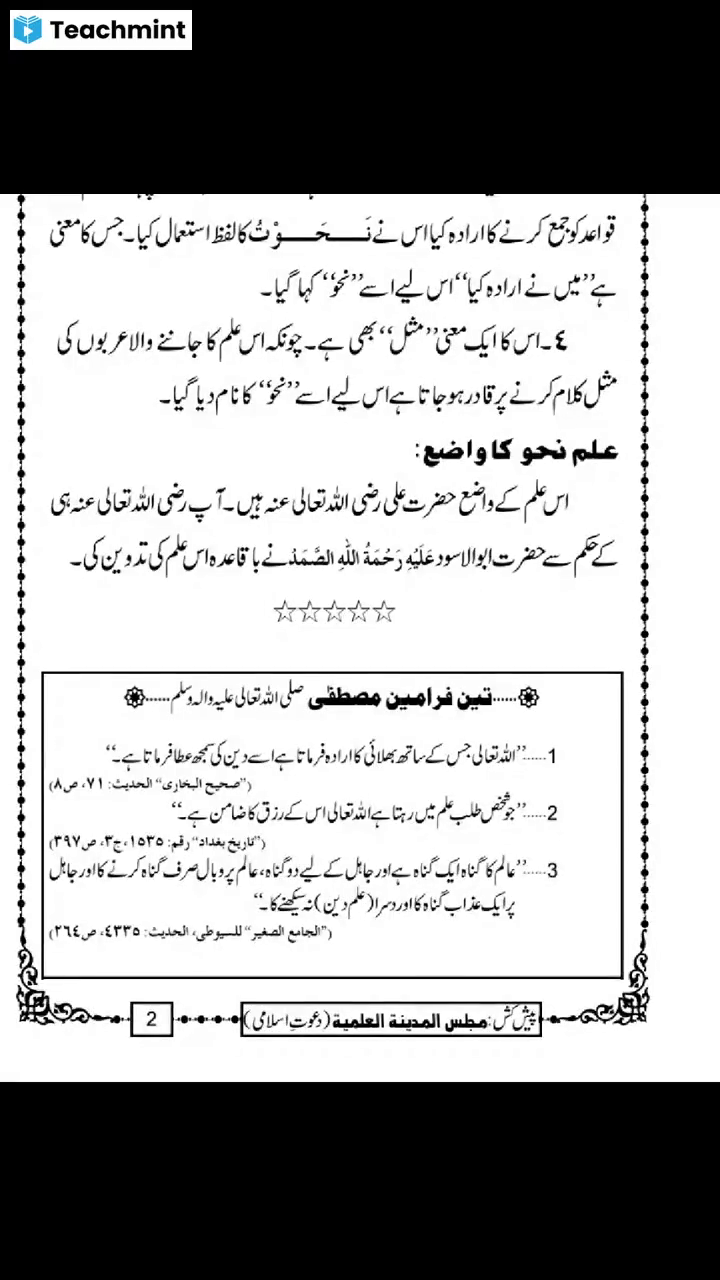 Teachmint
قواعد کو جمع کرنے کا ارادہ کیا اس نے نَحَوْتُ کا لفظ استعمال کیا۔ جس کا معنی
ہے ’’میں نے ارادہ کیا‘‘ اس لیے اسے ’’نحو‘‘ کہا گیا۔
٤۔ اس کا ایک معنی ’’مثل‘‘ بھی ہے۔ چونکہ اس علم کا جاننے والا عربوں کی
مثل کلام کرنے پر قادر ہو جاتا ہے اس لیے اسے ’’نحو‘‘ کا نام دیا گیا۔
علم نحو کا واضع:
اس علم کے واضع حضرت علی رضی اللہ تعالی عنہ ہیں۔ آپ رضی اللہ تعالی عنہ ہی
کے حکم سے حضرت ابوالاسود عَلَيْهِ رَحْمَةُ اللهِ الصَّمَدْ نے باقاعدہ اس علم کی تدوین کی۔
☆☆☆☆☆
......تین فرامین مصطفی صلی اللہ تعالی علیہ والہ وسلم......
1.....’’اللہ تعالی جس کے ساتھ بھلائی کا ارادہ فرماتا ہے اسے دین کی سمجھ عطا فرماتا ہے۔‘‘
(’’صحیح البخاری‘‘ الحدیث: ۷۱، ص۸)
2.....’’جو شخص طلب علم میں رہتا ہے اللہ تعالی اس کے رزق کا ضامن ہے۔‘‘
(’’تاریخ بغداد‘‘ رقم: ۱۵۳۵، ج۳، ص۳۹۷)
3.....’’عالم کا گناہ ایک گناہ ہے اور جاہل کے لیے دو گناہ، عالم پر وبال صرف گناہ کرنے کا اور جاہل
پر ایک عذاب گناہ کا اور دسرا (علم دین) نہ سیکھنے کا۔‘‘
(’’الجامع الصغیر‘‘ للسیوطی، الحدیث: ٤٣٣٥، ص٢٦٤)
پیش کش: مجلس المدینة العلمیة (دعوتِ اسلامی)
2